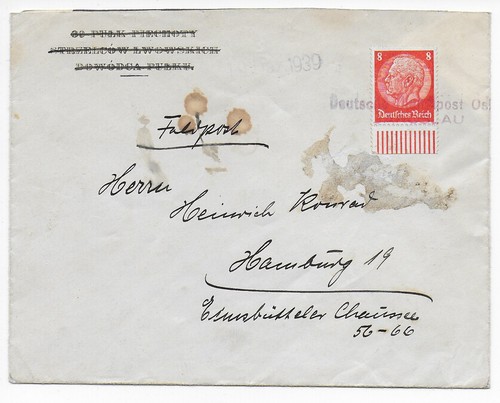 38 PUŁK PIECHOTY
STRZELCÓW LWOWSKICH
DOWÓDCA PUŁKU.
1939
8 8
Deutsches Reich
Feldpost
Herrn
Heinrich Konrad
Hamburg 19
Eimsbütteler Chaussee
56-66